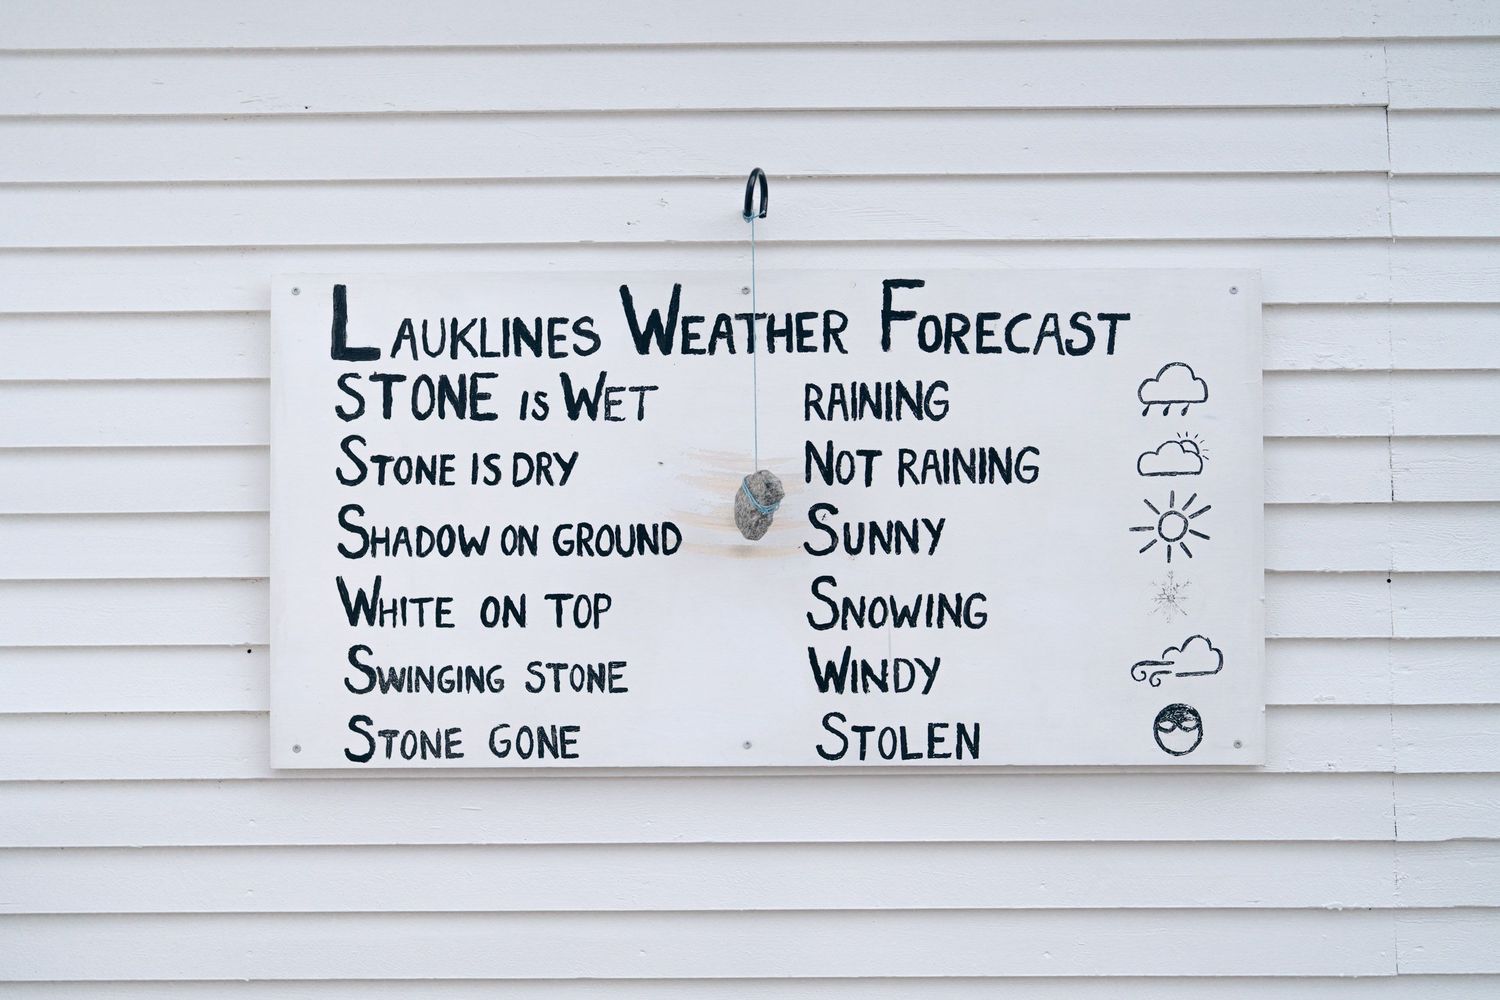 LAUKLINES WEATHER FORECAST
STONE IS WET RAINING
STONE IS DRY NOT RAINING
SHADOW ON GROUND SUNNY
WHITE ON TOP SNOWING
SWINGING STONE WINDY
STONE GONE STOLEN